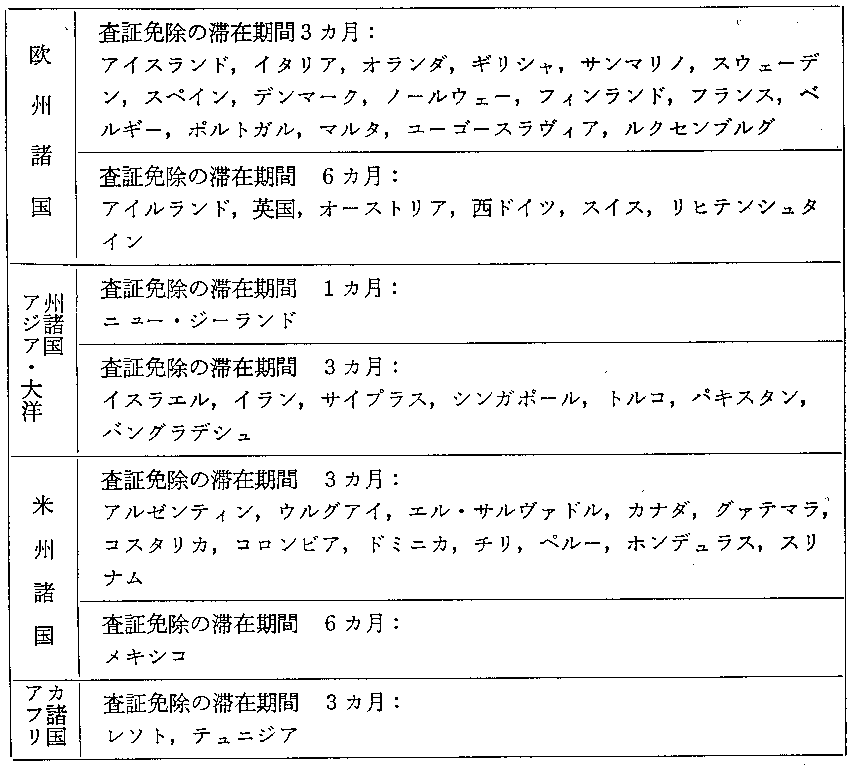 欧州諸国
査証免除の滞在期間3カ月:
アイスランド,イタリア,オランダ,ギリシャ,サンマリノ,スウェーデ
ン,スペイン,デンマーク,ノールウェー,フィンランド,フランス,ベ
ルギー,ポルトガル,マルタ,ユーゴースラヴィア,ルクセンブルグ
査証免除の滞在期間 6カ月:
アイルランド,英国,オーストリア,西ドイツ,スイス,リヒテンシュタ
イン
アジア・大洋
州諸国
査証免除の滞在期間 1カ月:
ニュー・ジーランド
査証免除の滞在期間 3カ月:
イスラエル,イラン,サイプラス,シンガポール,トルコ,パキスタン,
バングラデシュ
米州諸国
査証免除の滞在期間 3カ月:
アルゼンティン,ウルグアイ,エル・サルヴァドル,カナダ,グァテマラ,
コスタリカ,コロンビア,ドミニカ,チリ,ペルー,ホンデュラス,スリ
ナム
査証免除の滞在期間 6カ月:
メキシコ
アフリ
カ諸国
査証免除の滞在期間 3カ月:
レソト,テュニジア